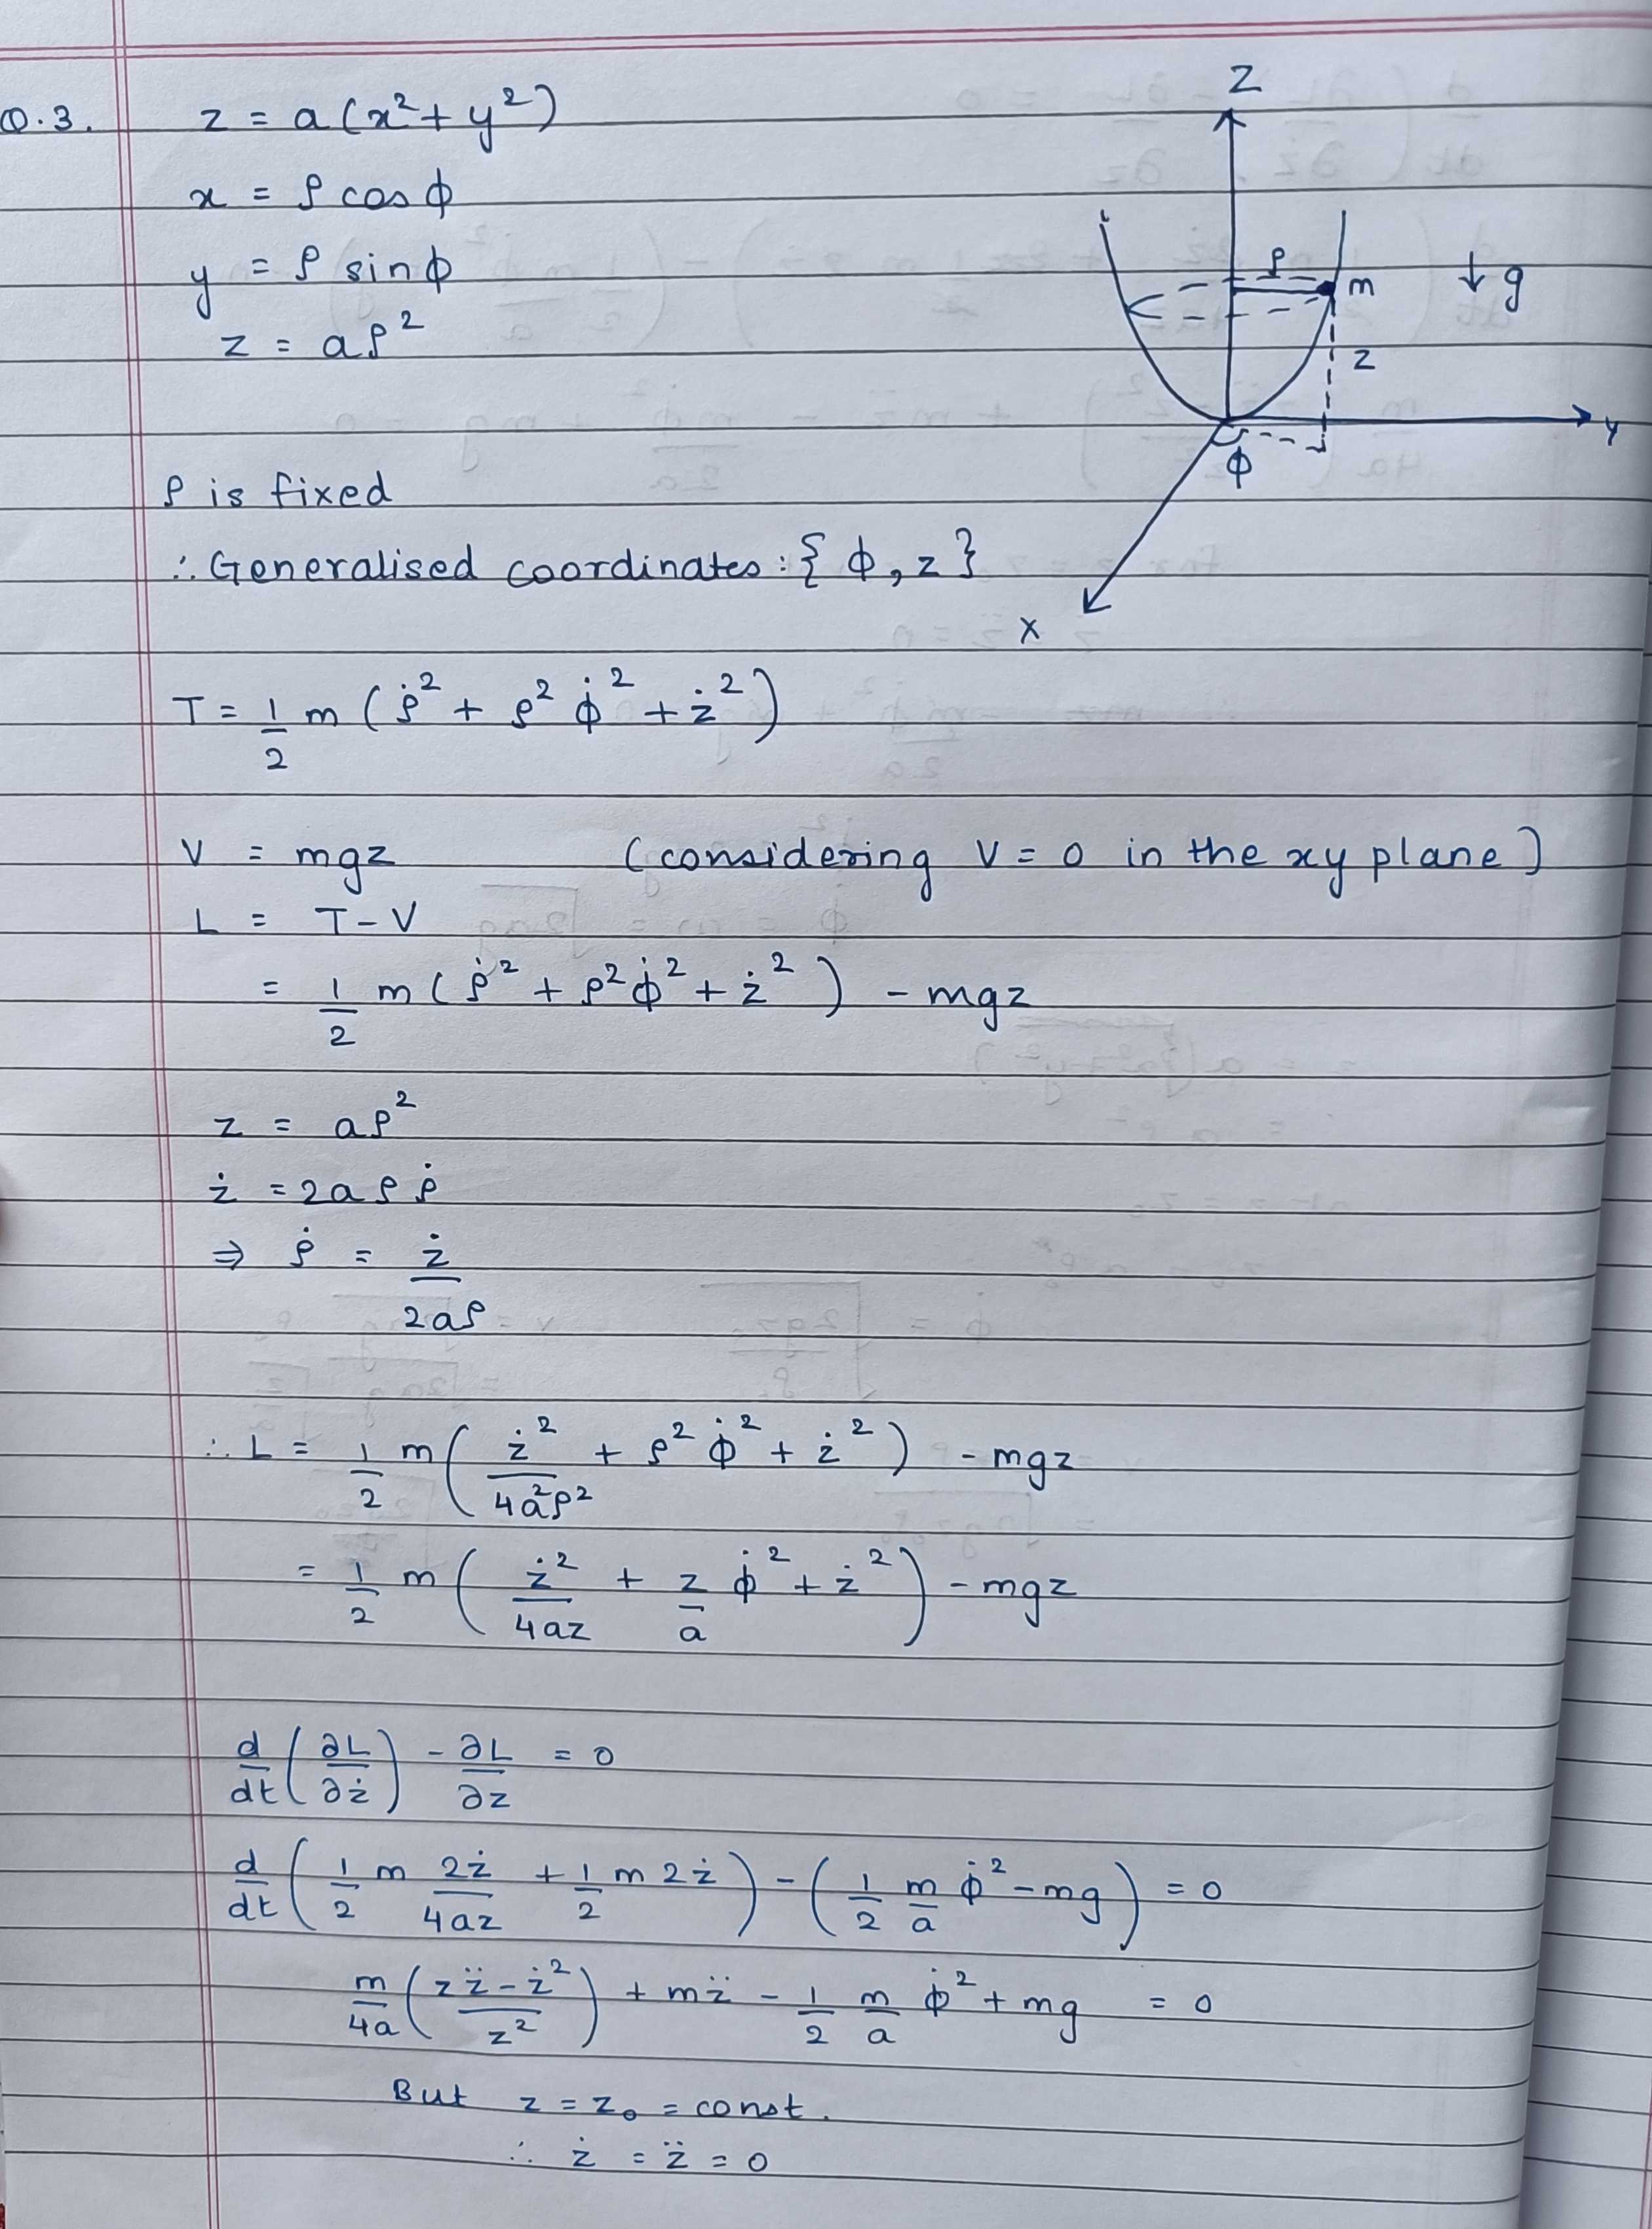 Q.3. z = a(x² + y²)
x = ρ cos ϕ
y = ρ sin ϕ
z = aρ²
Z
ρ
m
↓ g
z
y
ϕ
x
ρ is fixed
∴ Generalised coordinates : { ϕ, z }
T = 1/2 m (ρ̇² + ρ² ϕ̇² + ż²)
V = mgz (considering V = 0 in the xy plane)
L = T - V
= 1/2 m (ρ̇² + ρ² ϕ̇² + ż²) - mgz
z = aρ²
ż = 2aρρ̇
⇒ ρ̇ = ż/2aρ
∴ L = 1/2 m (ż²/4a²ρ² + ρ² ϕ̇² + ż²) - mgz
= 1/2 m (ż²/4az + z/a ϕ̇² + ż²) - mgz
d/dt (∂L/∂ż) - ∂L/∂z = 0
d/dt (1/2 m 2ż/4az + 1/2 m 2ż) - (1/2 m/a ϕ̇² - mg) = 0
m/4a ((z z̈ - ż²)/z²) + m z̈ - 1/2 m/a ϕ̇² + mg = 0
But z = z₀ = const.
∴ ż = z̈ = 0